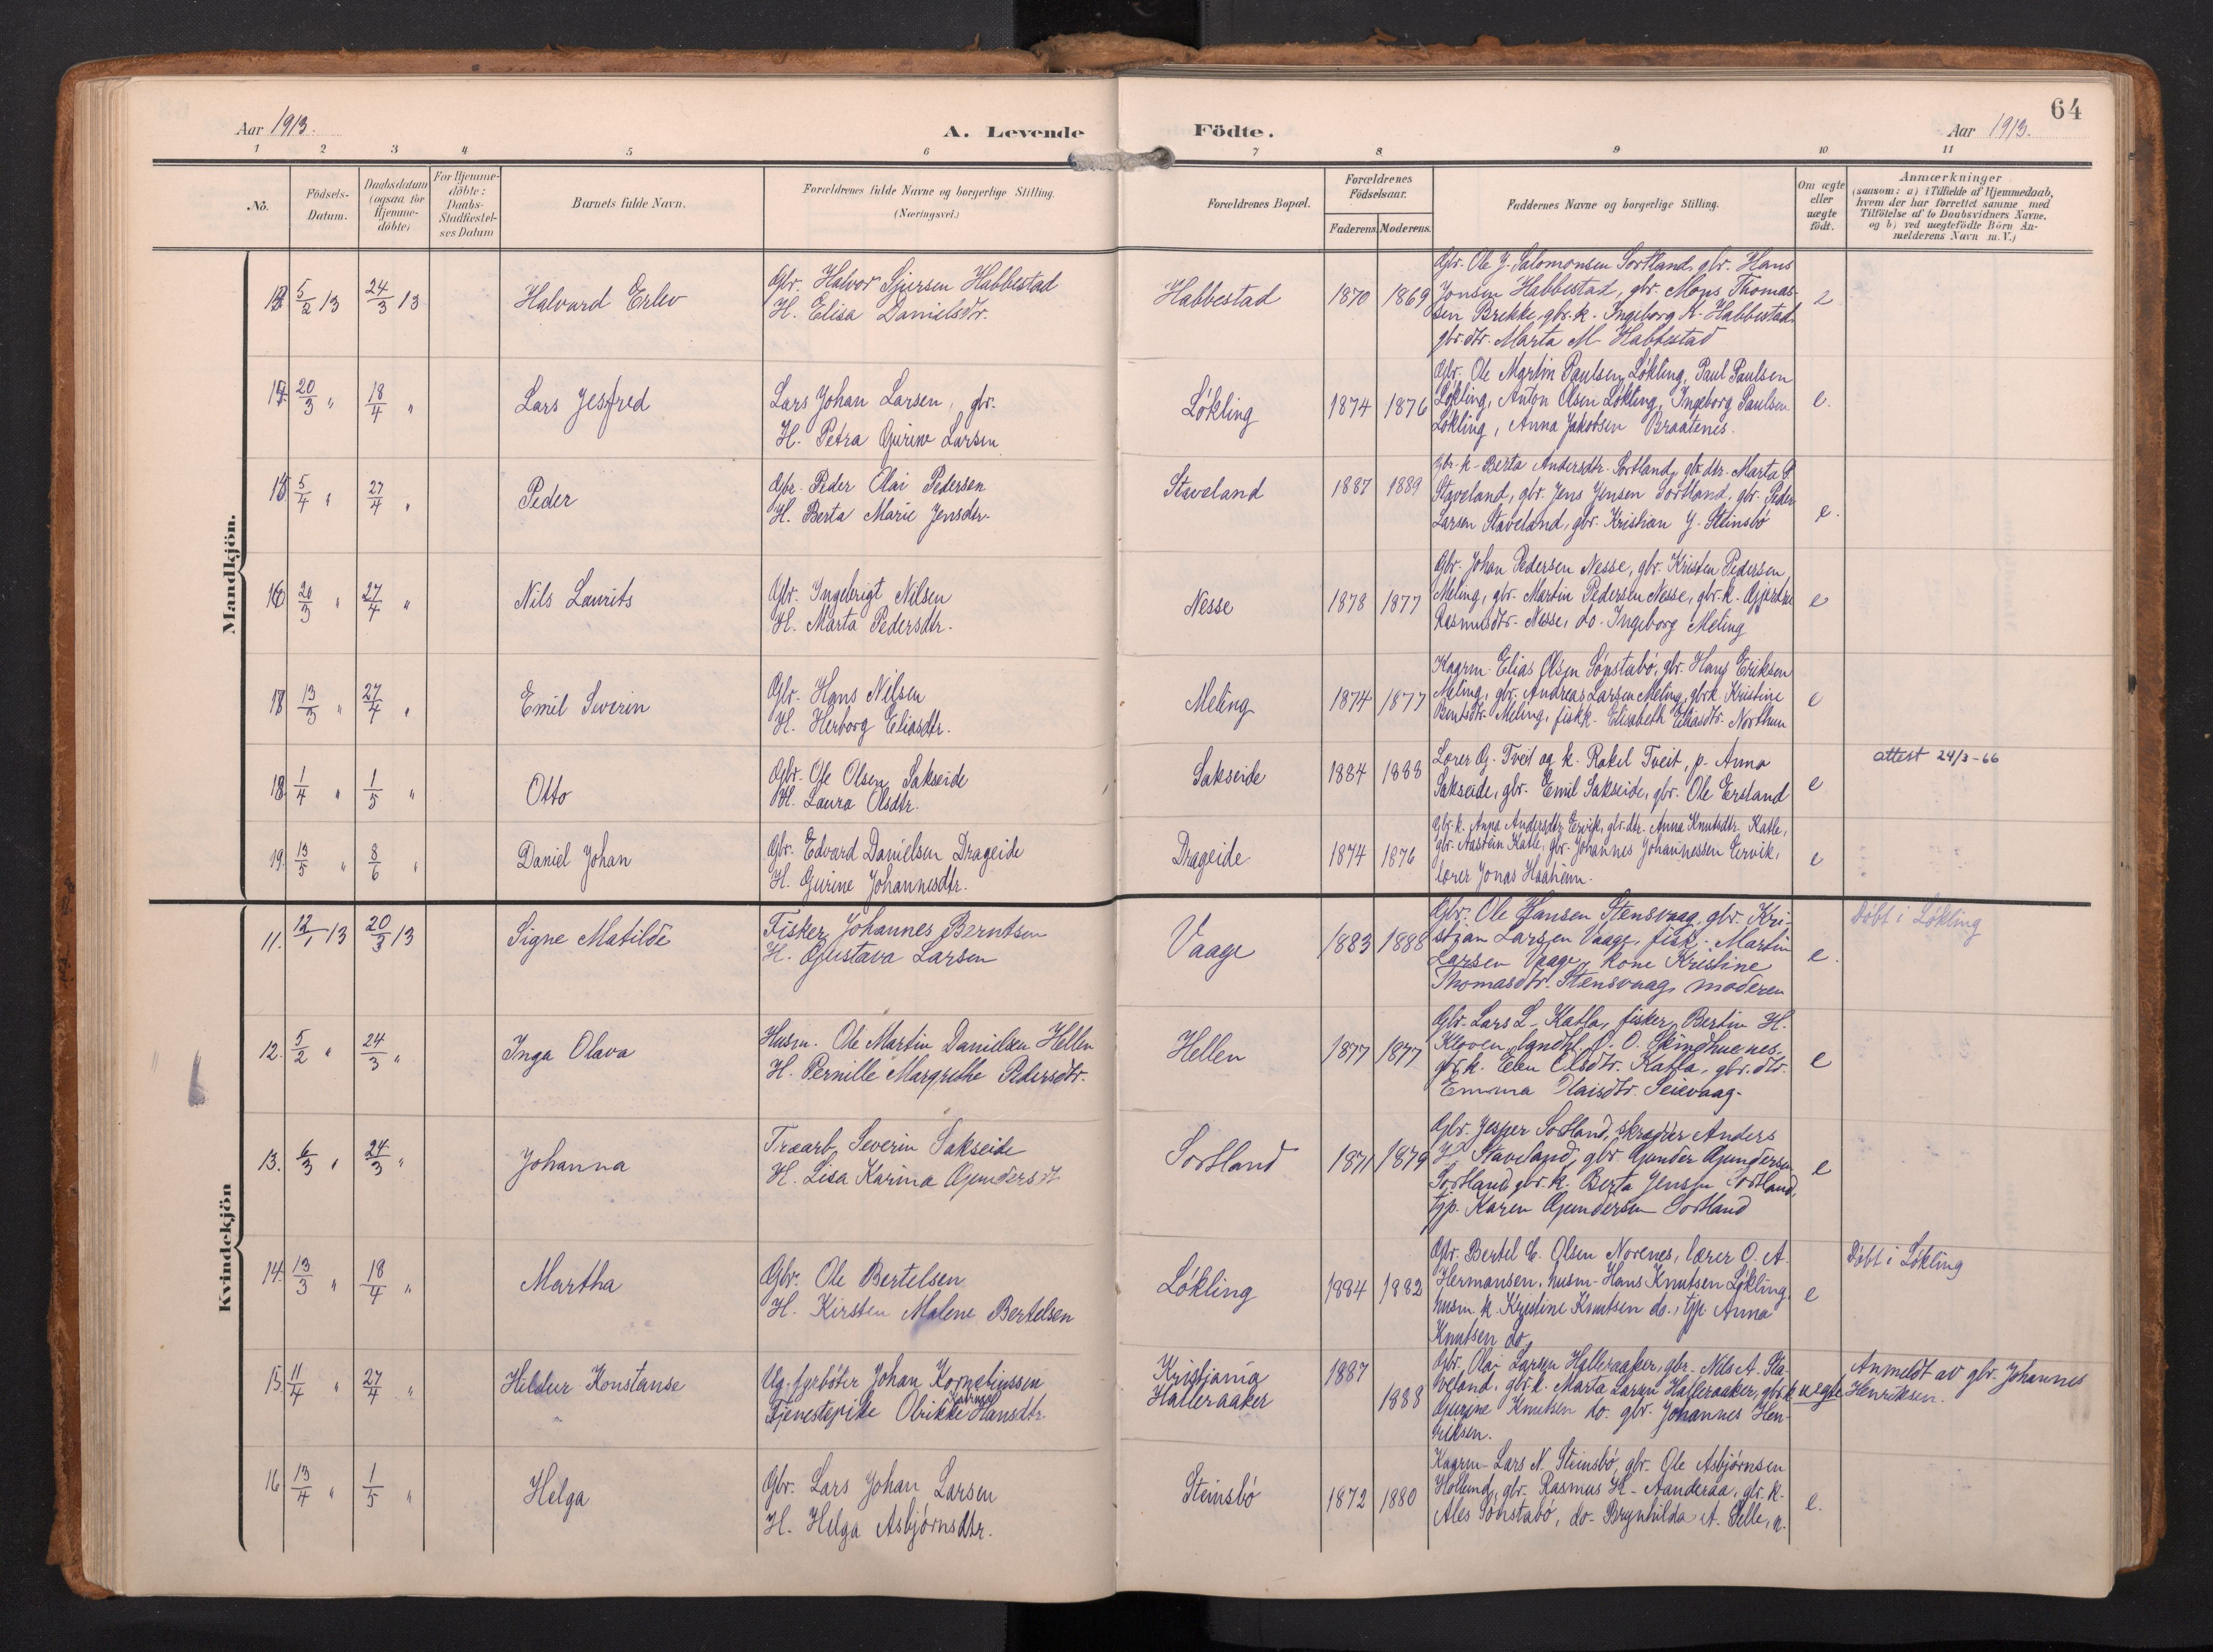 64
Aar 1913.
A. Levende Födte.
Aar 1913.
1 2 3 4 5 6 7 8 9 10 11
No.
Födsels-Datum.
Daabsdatum (ogsaa for Hjemme-döbte)
For Hjemme-döbte: Daabs-Stadfæstel-ses Datum
Barnets fulde Navn.
Forældrenes fulde Navne og borgerlige Stilling.
(Næringsvei.)
Forældrenes Bopæl.
Forældrenes Födselsaar.
Faderens. Moderens.
Faddernes Navne og borgerlige Stilling.
Om ægte eller uægte födt.
Anmærkninger
(saasom: a) i Tilfælde af Hjemmedaab,
hvem der har forrettet samme med
Tilföielse af to Daabsvidners Navne,
og b) ved uægtefödte Börn An-
melderens Navn m.V.)
Mandkjön.
13 5/2 13 24/3 13
Halvard Erlev
Gbr. Halvor Sjursen Habbestad
H. Elisa Danielsdtr.
Habbestad
1870 1869
Gbr. Ole J. Salomonsen Sortland, gbr. Hans
Jonsen Habbestad, gbr. Mons Thomas-
sen Brekke, gbr. k. Ingeborg K. Habbestad
gbr. dtr. Marta M. Habbestad
14 20/3 " 18/4 "
Lars Jesfred
Lars Johan Larsen, gbr.
H. Petra Gurine Larsen
Løkling
1874 1876
Gbr. Ole Martin Paulsen Løkling, Paul Paulsen
Løkling, Anton Olsen Løkling, Ingeborg Paulsen
Løkling, Anna Jakobsen Braatenes.
e.
15 5/4 " 27/4 "
Peder
Gbr. Peder Olai Pedersen
H. Berta Marie Jensdtr.
Staveland
1887 1889
Gbr. k. Berta Andersdtr. Sortland, gbr. dtr. Marta P.
Staveland, gbr. Jens Jensen Sortland, gbr. Peder
Larsen Staveland, gbr. Kristian J. Steinsbö
e.
16 20/3 " 27/4 "
Nils Laurits
Gbr. Ingebrigt Nilsen
H. Marta Pedersdtr.
Nesse
1878 1877
Gbr. Johan Pedersen Nesse, gbr. Kristen Pedersen
Meling, gbr. Martin Pedersen Nesse, gbr. k. Gjertine
Rasmusdtr. Nesse, do. Ingeborg Meling
e
17 13/3 " 27/4 "
Emil Severin
Gbr. Hans Nilsen
H. Herborg Eliasdtr.
Meling
1874 1877
Kaarm. Elias Olsen Sönstabö, gbr. Hans Eriksen
Meling, gbr. Andreas Larsen Meling, gbr. k. Kristine
Berntsdtr. Meling, fisk. k. Elisabeth Eliasdtr. Northun
e
18 1/4 " 1/5 "
Otto
Gbr. Ole Olsen Sakseide
H. Laura Olsdtr.
Sakseide
1884 1888
Lærer G. Tveit og k. Rakel Tveit, p. Anna
Sakseide, gbr. Emil Sakseide, gbr. Ole Ersland
e
attest 24/3-66
19. 13/5 " 8/6 "
Daniel Johan
Gbr. Edvard Danielsen Drageide
H. Gurine Johannesdtr.
Drageide
1874 1876
Gbr. k. Anna Andersdtr. Ervik, gbr. dtr. Anna Knutsdtr. Katle,
gbr. Aastein Katle, gbr. Johannes Johannessen Eervik,
lærer Jonas Haaheim.
e
Kvindekjön
11. 12/1 13 20/3 13
Signe Matilde
Fisker Johannes Berntsen
H. Gustava Larsen
Vaage
1883 1888
Gbr. Ole Hansen Stensvaag, gbr. Kri-
stian Larsen Vaage, fisk. Martin
Larsen Vaage, kone Kristine
Thomasdtr. Stensvaag, moderen
e.
Döbt i Løkling
12. 5/2 " 24/3 "
Inga Olava
Husm. Ole Martin Danielsen Hellen
H. Pernille Margrethe Pedersdtr.
Hellen
1877 1877
Gbr. Lars L. Katla, fisker Bertin H.
Kleven, landhl. O. O. Skindhuenes,
gbr. k. Elen Olsdtr. Katla, gbr. dtr.
Emma Olaisdtr. Seievaag.
e
13. 6/3 " 24/3 "
Johanna
Træarb. Severin Sakseide
H. Lisa Karina Gundersdt
Sortland
1871 1879
Gbr. Jesper Sortland, skræder Anders
H. Staveland, gbr. Gunder Gundersen
Sortland, gbr. k. Berta Jensen Sortland,
tjp. Karen Gundersen Sortland
e
14. 13/3 " 18/4 "
Martha
Gbr. Ole Bertelsen
H. Kirsten Malene Bertelsen
Løkling
1884 1882
Gbr. Bertel E. Olsen Norenes, lærer O. A.
Hermansen, husm. Hans Knutsen Løkling
husm. k. Kristine Knutsen do., tjp. Anna
Knutsen do.
e
Döbt i Løkling
15. 11/4 " 27/4 "
Hildur Konstanse
Ug. fyrbøter Johan Korneliussen
Tjenestepike Olrikke Katrine Hansdtr.
Kristiania
Halleraaker
1887
1888
Gbr. Olai Larsen Halleraaker, gbr. Nils A. Sta-
veland, gbr. k. Marta Larsen Halleraaker, gbr. k
Gurine Knutsen do. gbr. Johannes Hen-
riksen.
uegte
Anmeldt av gbr. Johannes
Henriksen.
16 13/4 " 1/5 "
Helga
Gbr. Lars Johan Larsen
H. Helga Asbjørnsdtr.
Steinsbö
1872 1880
Kaarm. Lars N. Steinsbö, gbr. Ole Asbjørnsen
Hollund, gbr. Rasmus H. Aanderaa, gbr. k.
Ales Sönstabö, do. Brynhilda A. Selle, n.
e.